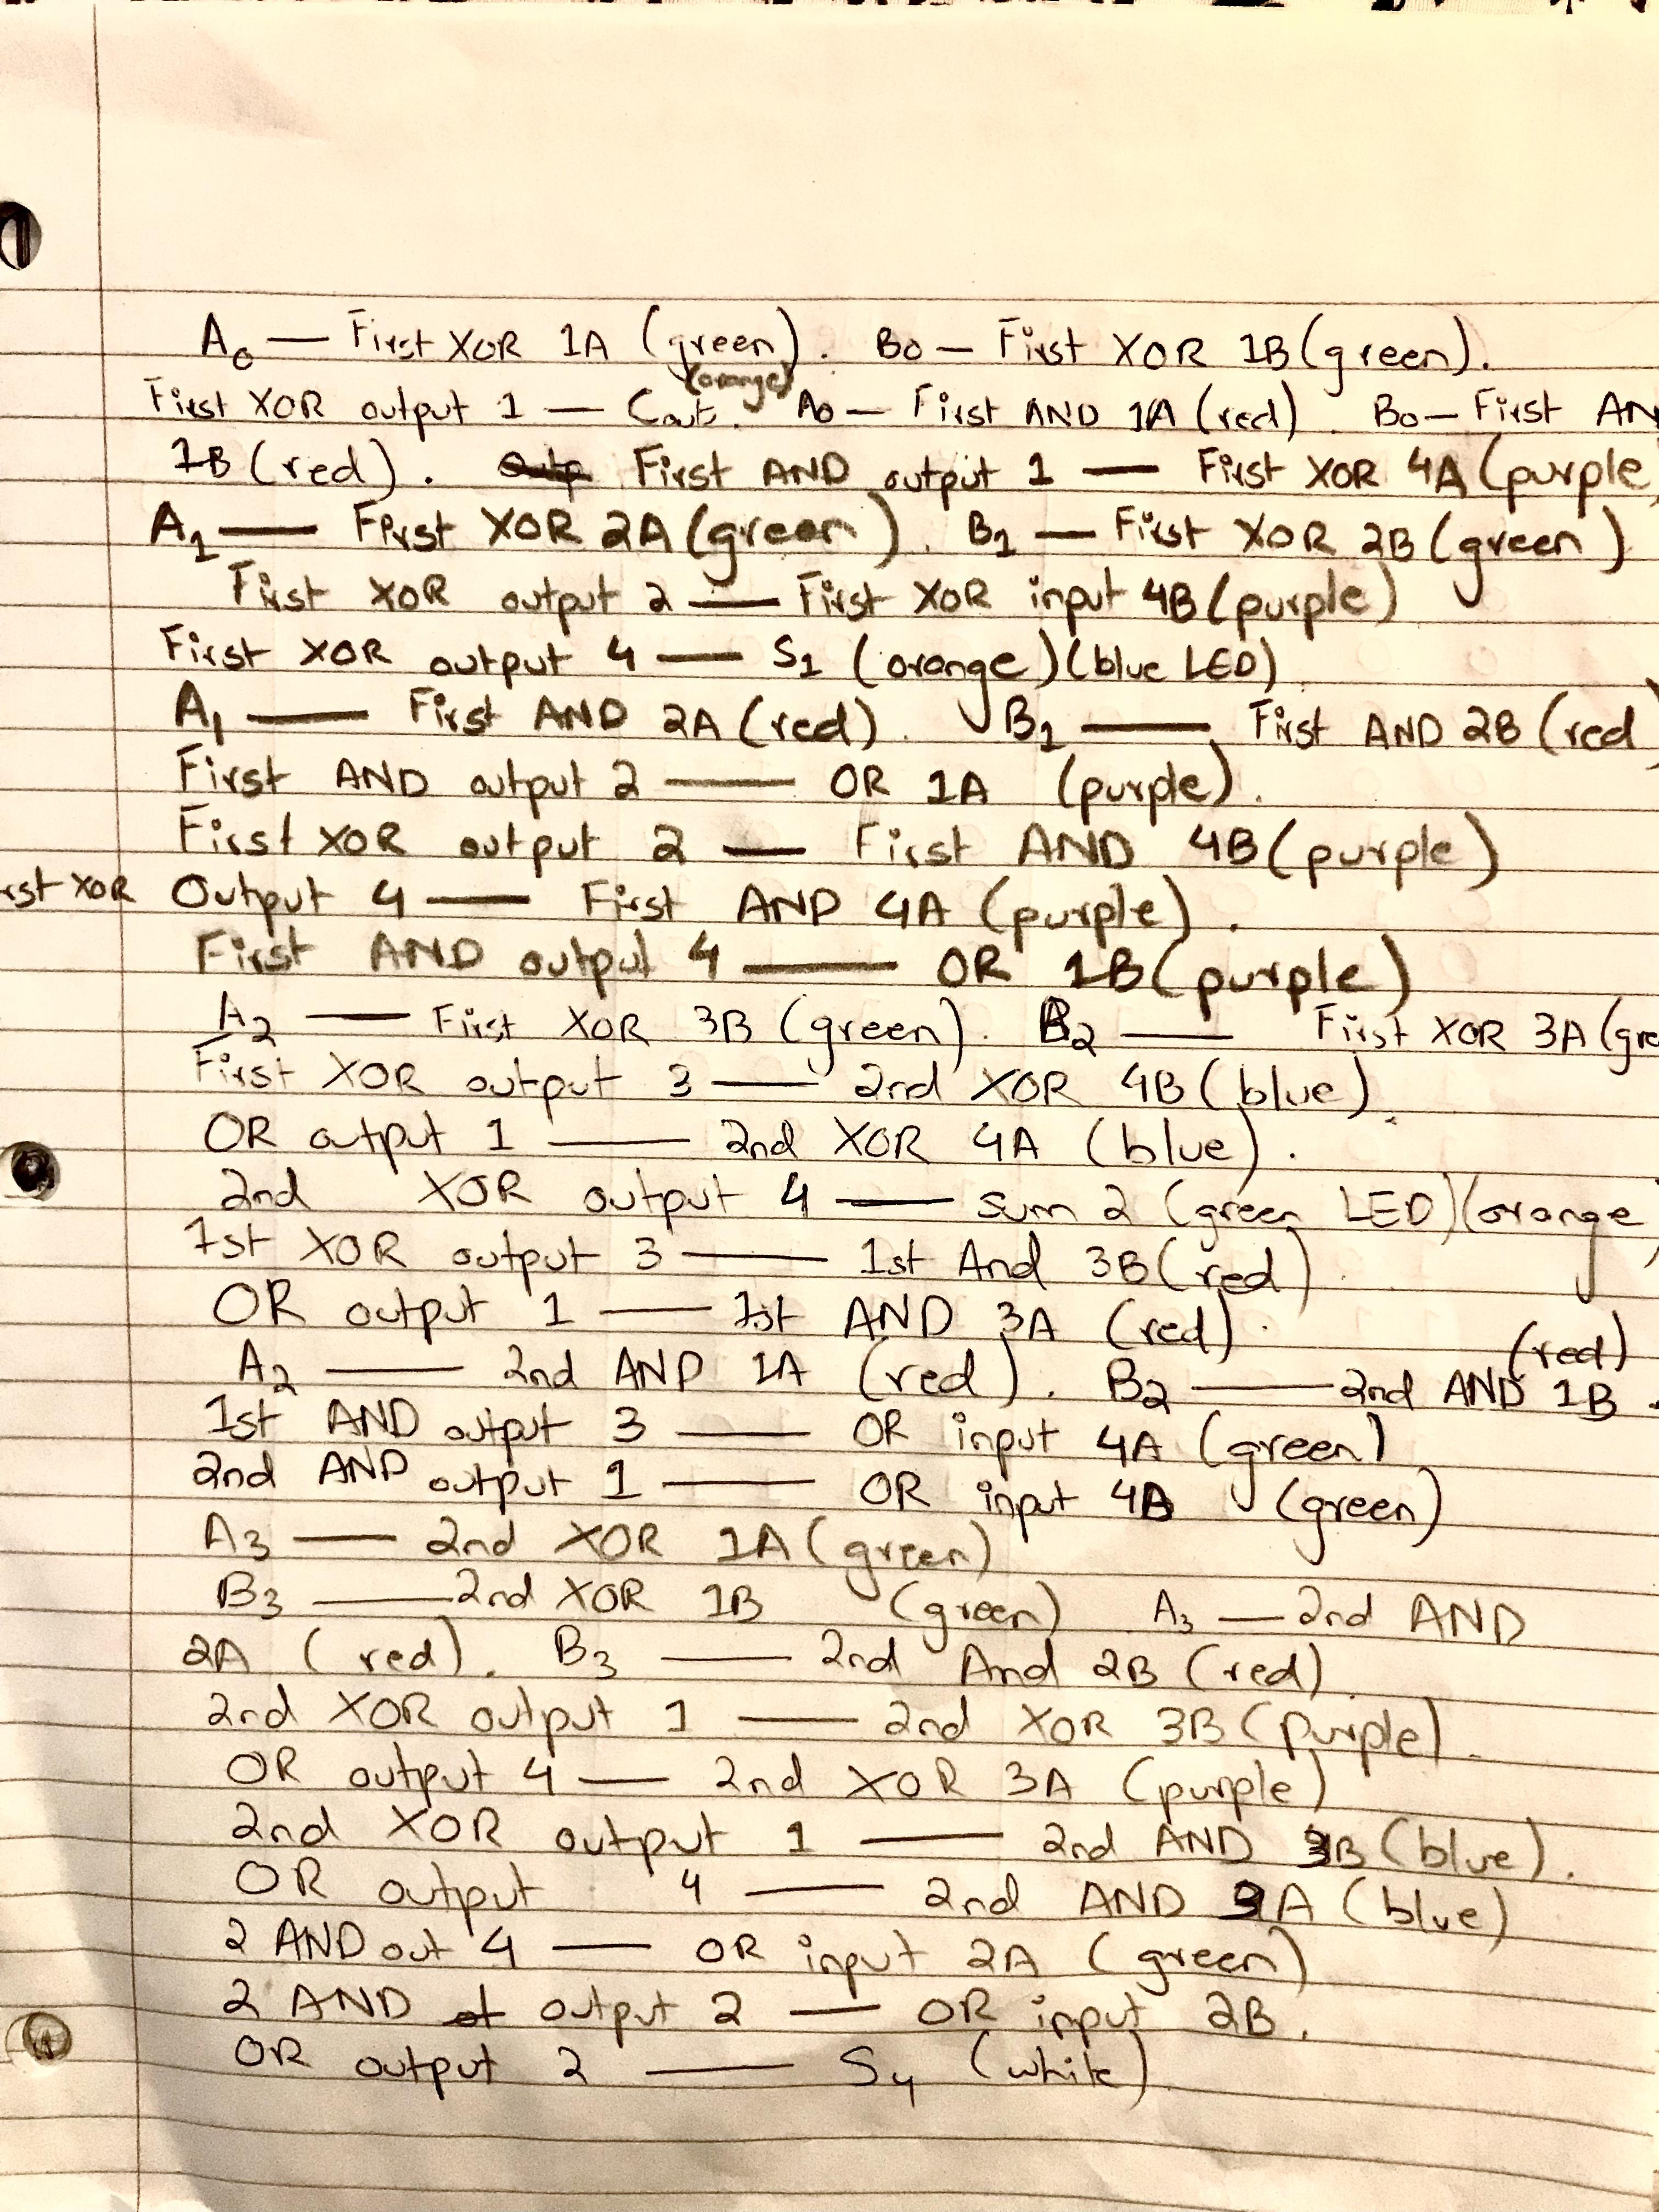 A0 — First XOR 1A (green). B0 — First XOR 1B (green).
(orange)
First XOR output 1 — Cout. A0 — First AND 1A (red). B0 — First AN
1B (red). First AND output 1 — First XOR 4A (purple
A1 — First XOR 2A (green). B1 — First XOR 2B (green)
First XOR output 2 — First XOR input 4B (purple)
First XOR output 4 — S1 (orange) (blue LED)
A1 — First AND 2A (red). B1 — First AND 2B (red)
First AND output 2 — OR 1A (purple).
First XOR output 2 — First AND 4B (purple)
rst XOR Output 4 — First AND 4A (purple).
First AND output 4 — OR 1B (purple)
A2 — First XOR 3B (green). B2 — First XOR 3A (gre
First XOR output 3 — 2nd XOR 4B (blue).
OR output 1 — 2nd XOR 4A (blue).
2nd XOR output 4 — Sum 2 (green LED) (orange)
1st XOR output 3 — 1st And 3B (red).
OR output 1 — 1st AND 3A (red).
(red)
A2 — 2nd AND 1A (red). B2 — 2nd AND 1B.
1st AND output 3 — OR input 4A (green)
2nd AND output 1 — OR input 4B (green)
A3 — 2nd XOR 1A (green)
B3 — 2nd XOR 1B (green) A3 — 2nd AND
2A (red). B3 — 2nd And 2B (red).
2nd XOR output 1 — 2nd XOR 3B (purple).
OR output 4 — 2nd XOR 3A (purple)
2nd XOR output 1 — 2nd AND 3B (blue).
OR output 4 — 2nd AND A (blue)
2 AND out 4 — OR input 2A (green)
2 AND output 2 — OR input 2B.
OR output 2 — S4 (white)